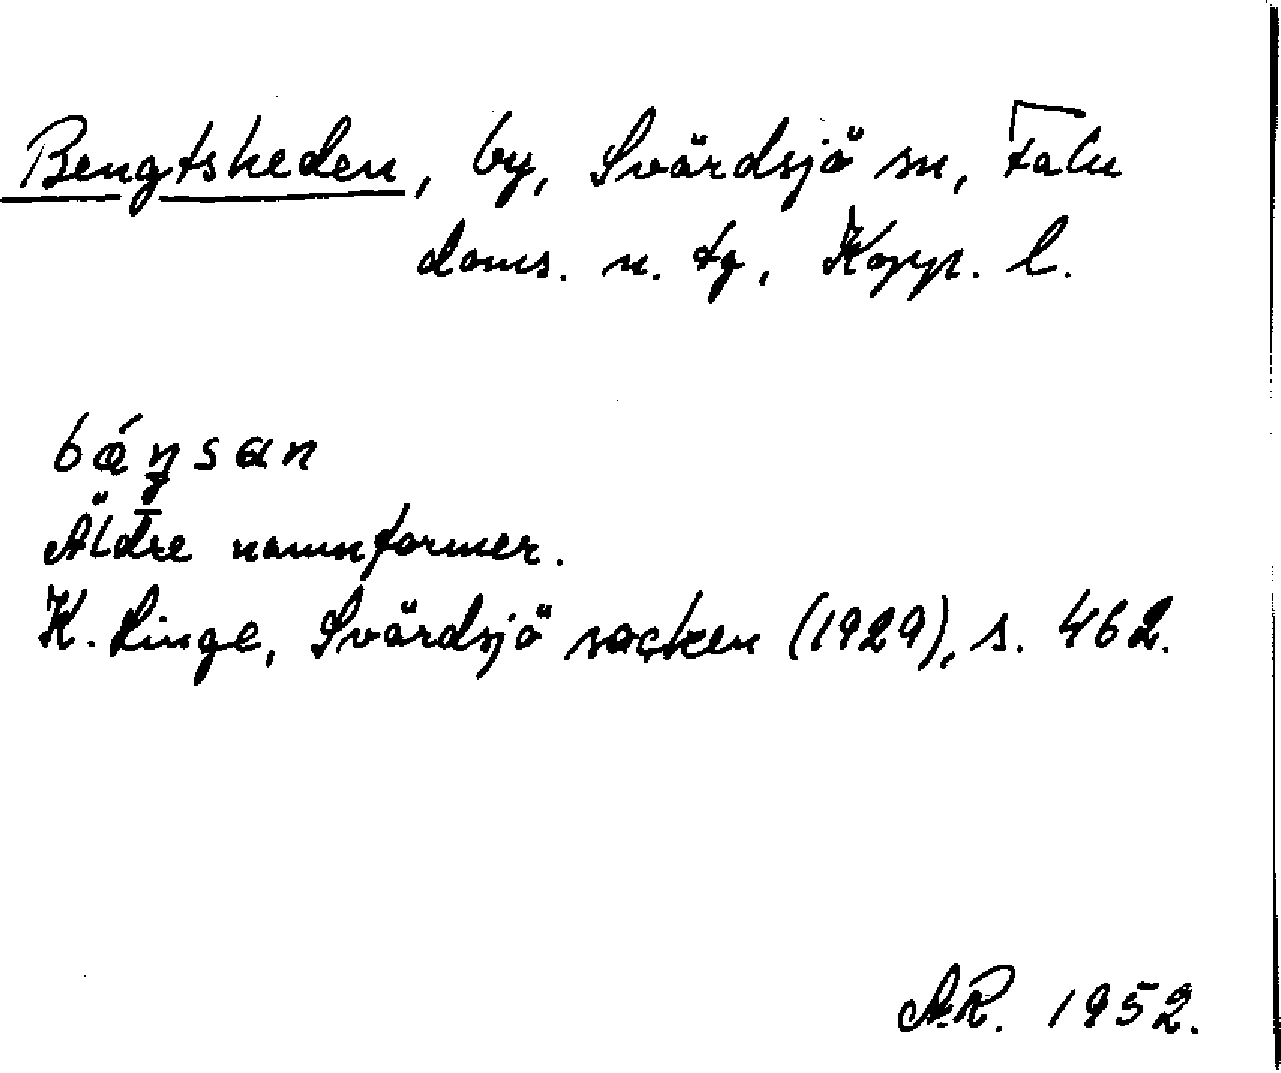 Bengtsheden, by, Svärdsjö sn, Falu
doms. n. tg, Kopp. l.
bǽŋsan
Äldre namnformer.
K. Linge, Svärdsjö socken (1929), s. 462.
A.R. 1952.